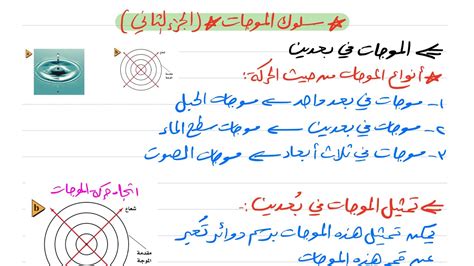 * سلوك الموجات * (الجزء الثاني)
الموجات في بعدين
* أنواع الموجات من حيث الحركة:
١- موجات في بعد واحد ← موجات الحبل
٢- موجات في بعدين ← موجات سطح الماء
٣- موجات في ثلاث أبعاد ← موجات الصوت
اتجاه حركة الموجات
b
شعاع
مقدمة الموجة
تمثيل الموجات في بُعدين:-
يمكن تمثيل هذه الموجات برسم دوائر تُعبر
عن قمم هذه الموجات